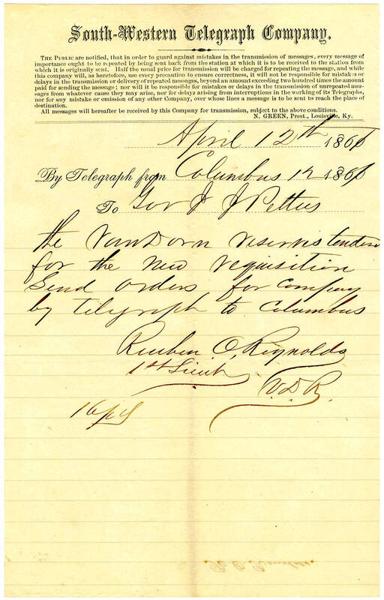 South-Western Telegraph Company.
THE PUBLIC are notified, that in order to guard against mistakes in the transmission of messages, every message of
importance ought to be repeated by being sent back from the station at which it is to be received to the station from
which it is originally sent. Half the usual price for transmission will be charged for repeating the message, and while
this company will, as heretofore, use every precaution to ensure correctness, it will not be responsible for mistakes or
delays in the transmission or delivery of repeated messages, beyond an amount exceeding two hundred times the amount
paid for sending the message; nor will it be responsible for mistakes or delays in the transmission of unrepeated mes-
sages from whatever cause they may arise, nor for delays arising from interruptions in the working of its Telegraphs,
nor for any mistake or omission of any other Company, over whose lines a message is to be sent to reach the place of
destination.
All messages will hereafter be received by this Company for transmission, subject to the above conditions.
N. GREEN, Prest., Louisville, Ky.
April 12th 186
By Telegraph from Columbus 12 186
To Gov J J Pettus
the VanDorn reserves tender
for the new requisition
Send orders for company
by telegraph to Columbus
Reuben O. Reynolds
1st Lieut
V. D. R.